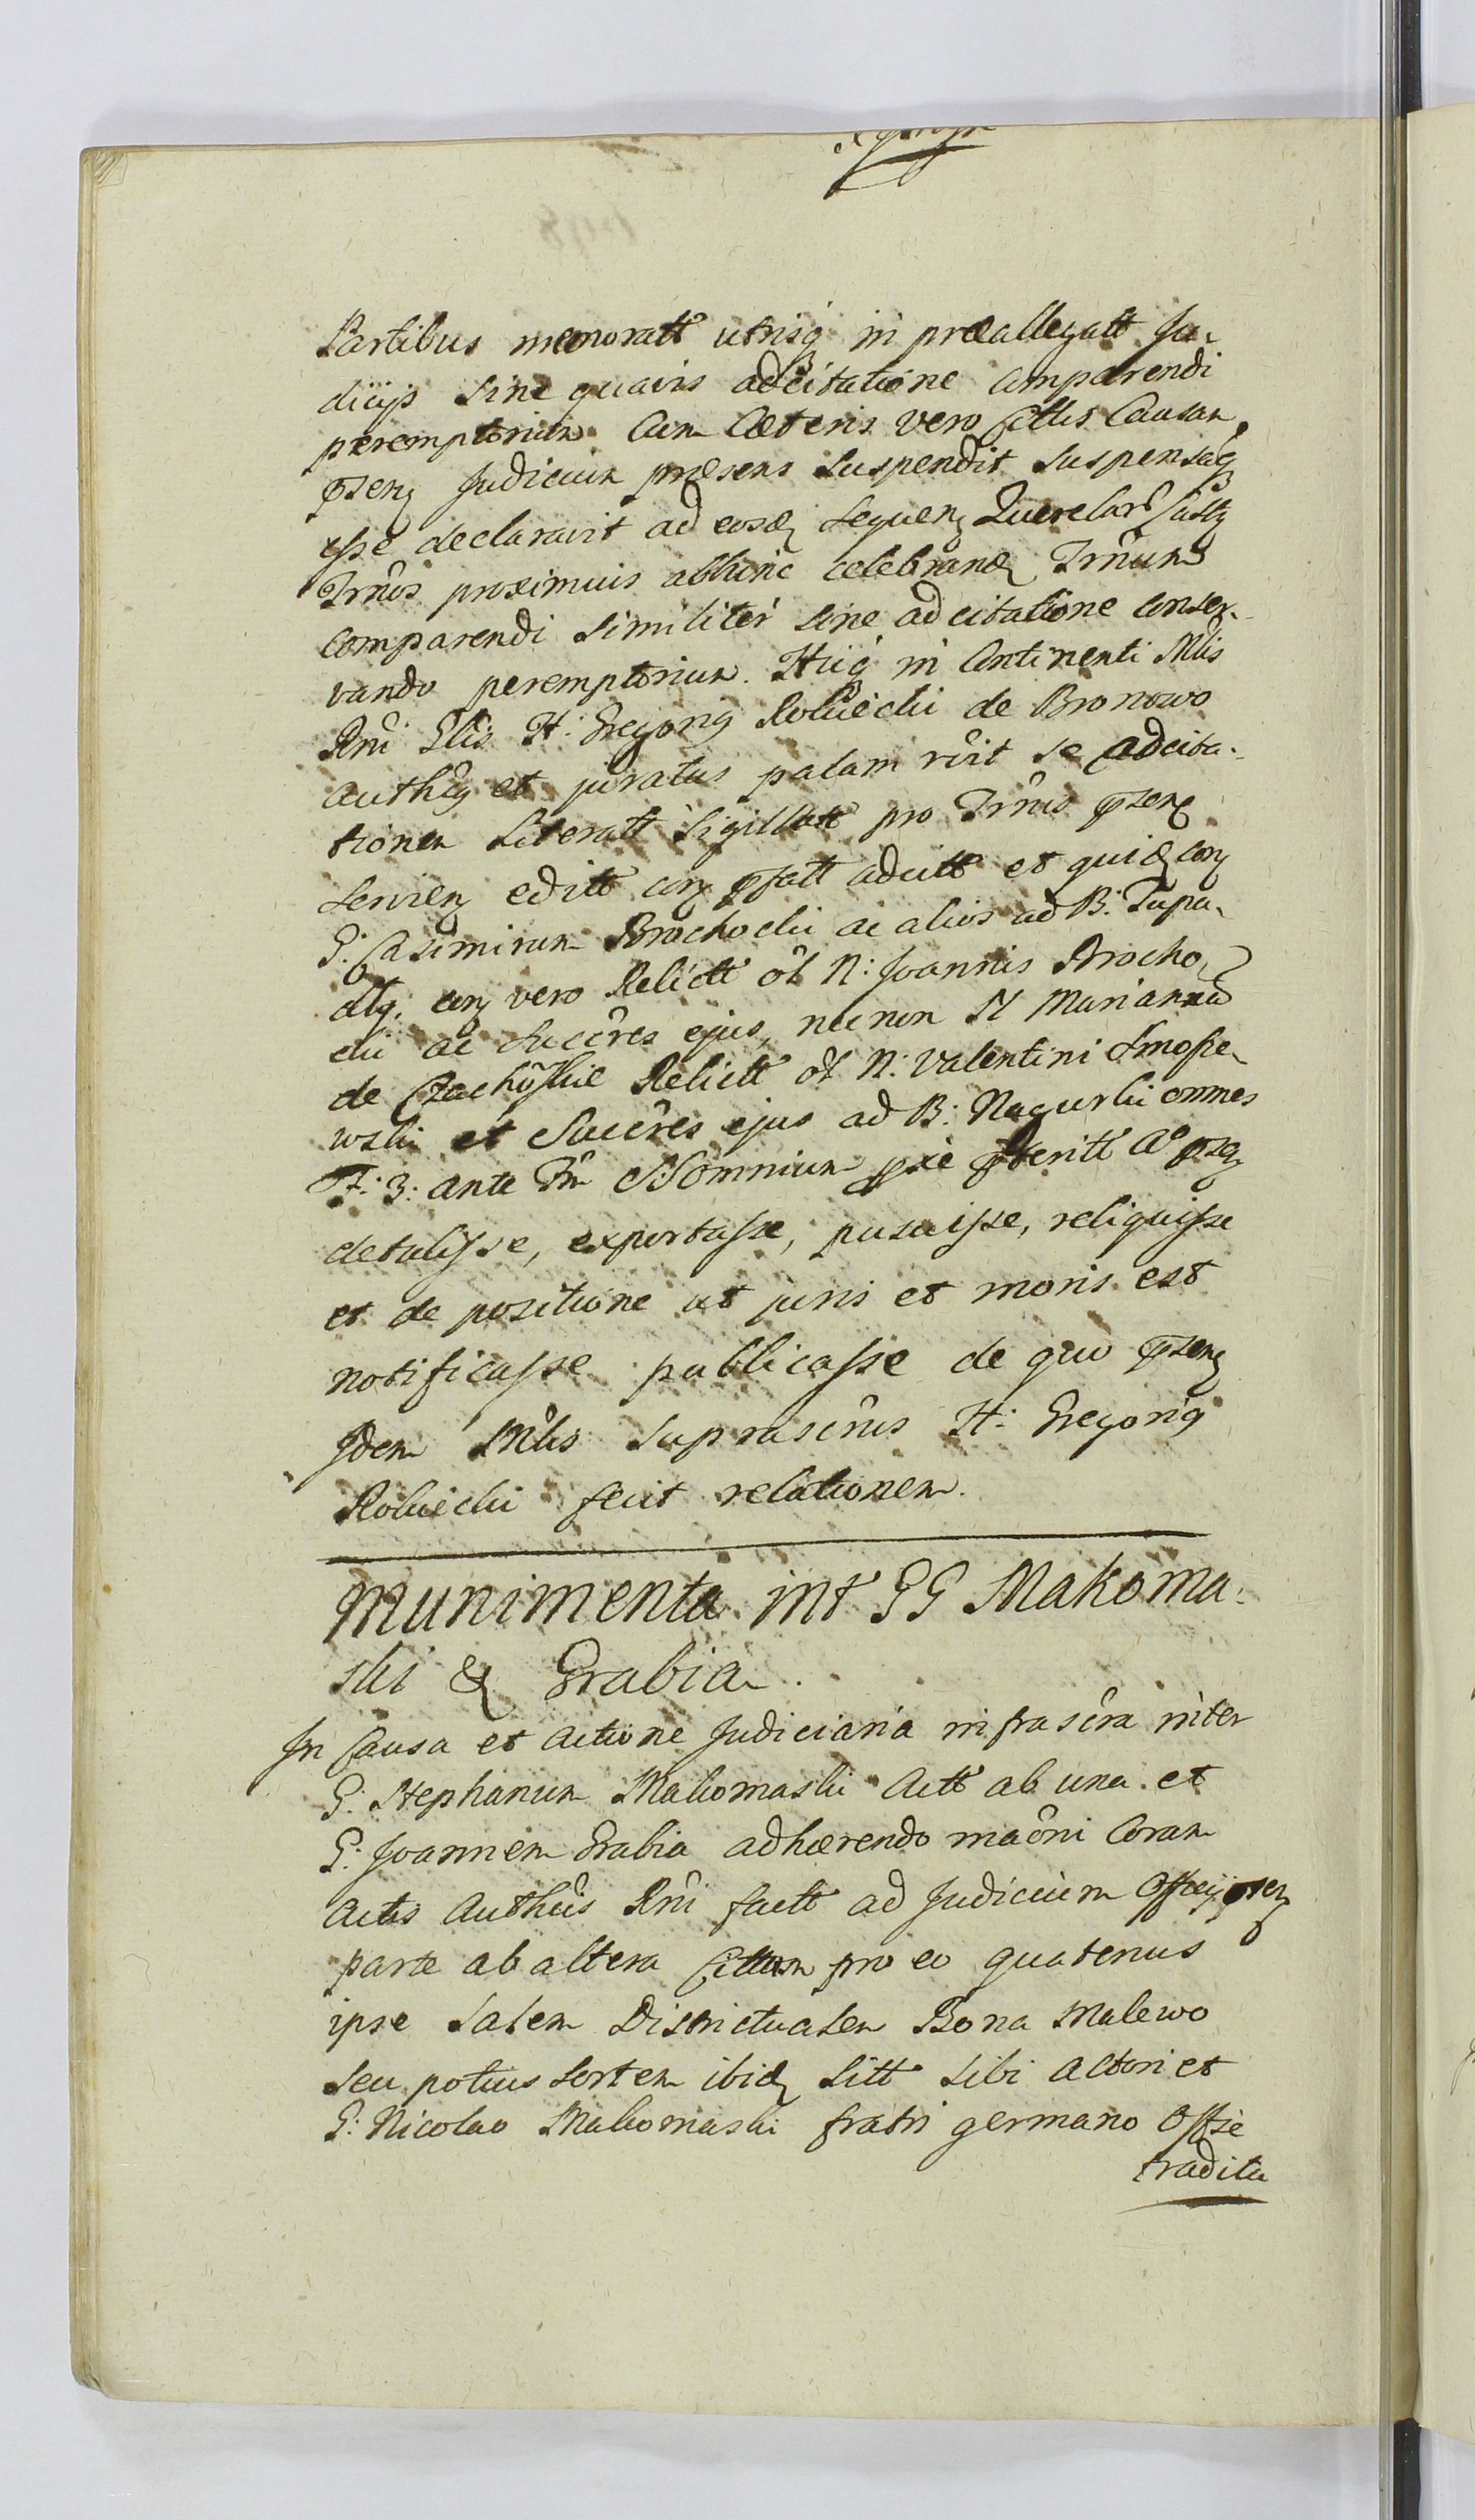 Partibus memoratt utrisq in præallegatt Ju-
diciis sine quavis adcitatione comparendi
peremptorium. Cum Cæteris vero Cittis Causam
psen Judicium præsens suspendit suspensaq
esse declaravit ad eosd sequen Querelar Castr
Trnos proximius abhinc celebrand Trnum
comparendi similiter sine adcitatione conser-
vando peremptorium. Hucq in Continenti Mlis
Rni Glis H: Gregoriq Robiecki de Bronowo
authcq et juratus palam rcit se adcita-
tionem Literatt Sigillatt pro Trnis psen
servien editt con pfatt adcitt et quid con
G: Casimirum Brochocki ac alios ad B: Tupa-
dly. con vero Relictt ol N: Joannis Brocho-
cki ac Succres ejus, necnon N Mariannã
de Czachoskie Relictt ol N: Valentini Smosze-
wski et Succres ejus ad B: Nagurki omnes
F: 3: ante Fm SSomnium pxe pteritt A° psen
detulisse, exportasse, posuisse, reliquisse
et de positione ut juris et moris est
notificasse publicasse de quo psen
Idem Mlis suprascrus H: Gregoriq
Robiecki fecit relationem.
Munimenta int GG Makoma-
ski & Grabia.
In Causa et actione Judiciaria infrascra inter
G: Stephanum Makomaski Actt ab una et
G: Joannem Grabia adhærendo maoni Coram
actis Authcis Rni factt ad Judicium Officii psen
parte ab altera Cittum pro eo quatenus
ipse Salem Districtualem Bona Malewo
seu potius sortem ibid sitt sibi Actori et
G: Nicolao Makomaski fratri germano Offse
tradita